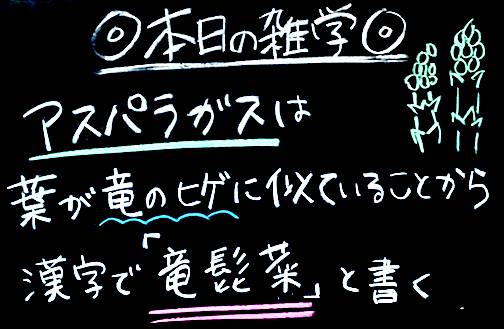 ◎本日の雑学◎
アスパラガスは
葉が竜のヒゲに似ていることから
漢字で「竜髭菜」と書く